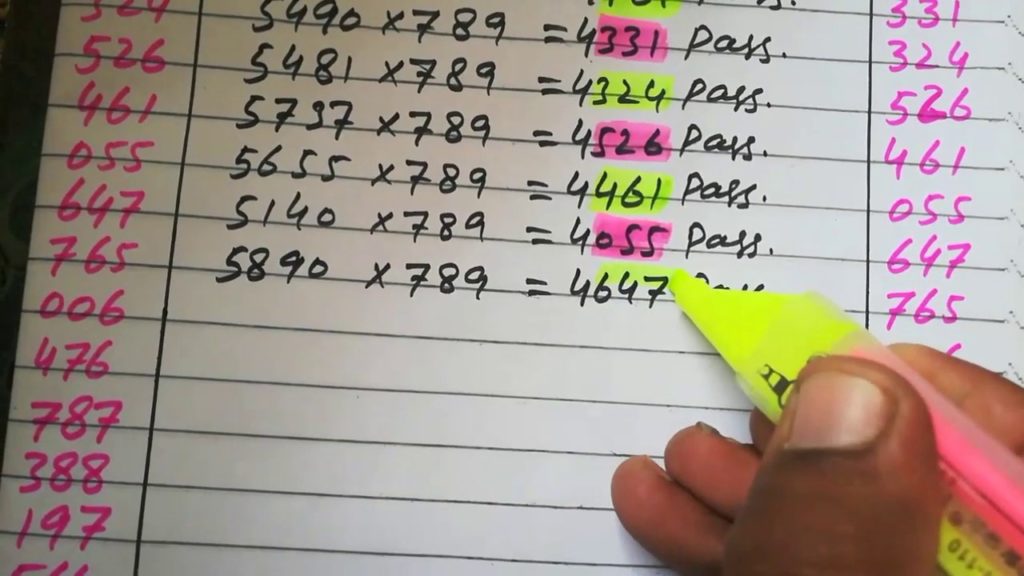 324 5490 ×789 =4331 Pass. 331
526 5481 ×789 =4324 Pass. 324
461 5737 ×789 =4526 Pass. 526
055 5655 ×789 =4461 Pass. 461
647 5140 ×789 =4055 Pass. 055
765 5890 ×789 =4647 647
006 765
476
787
388
197